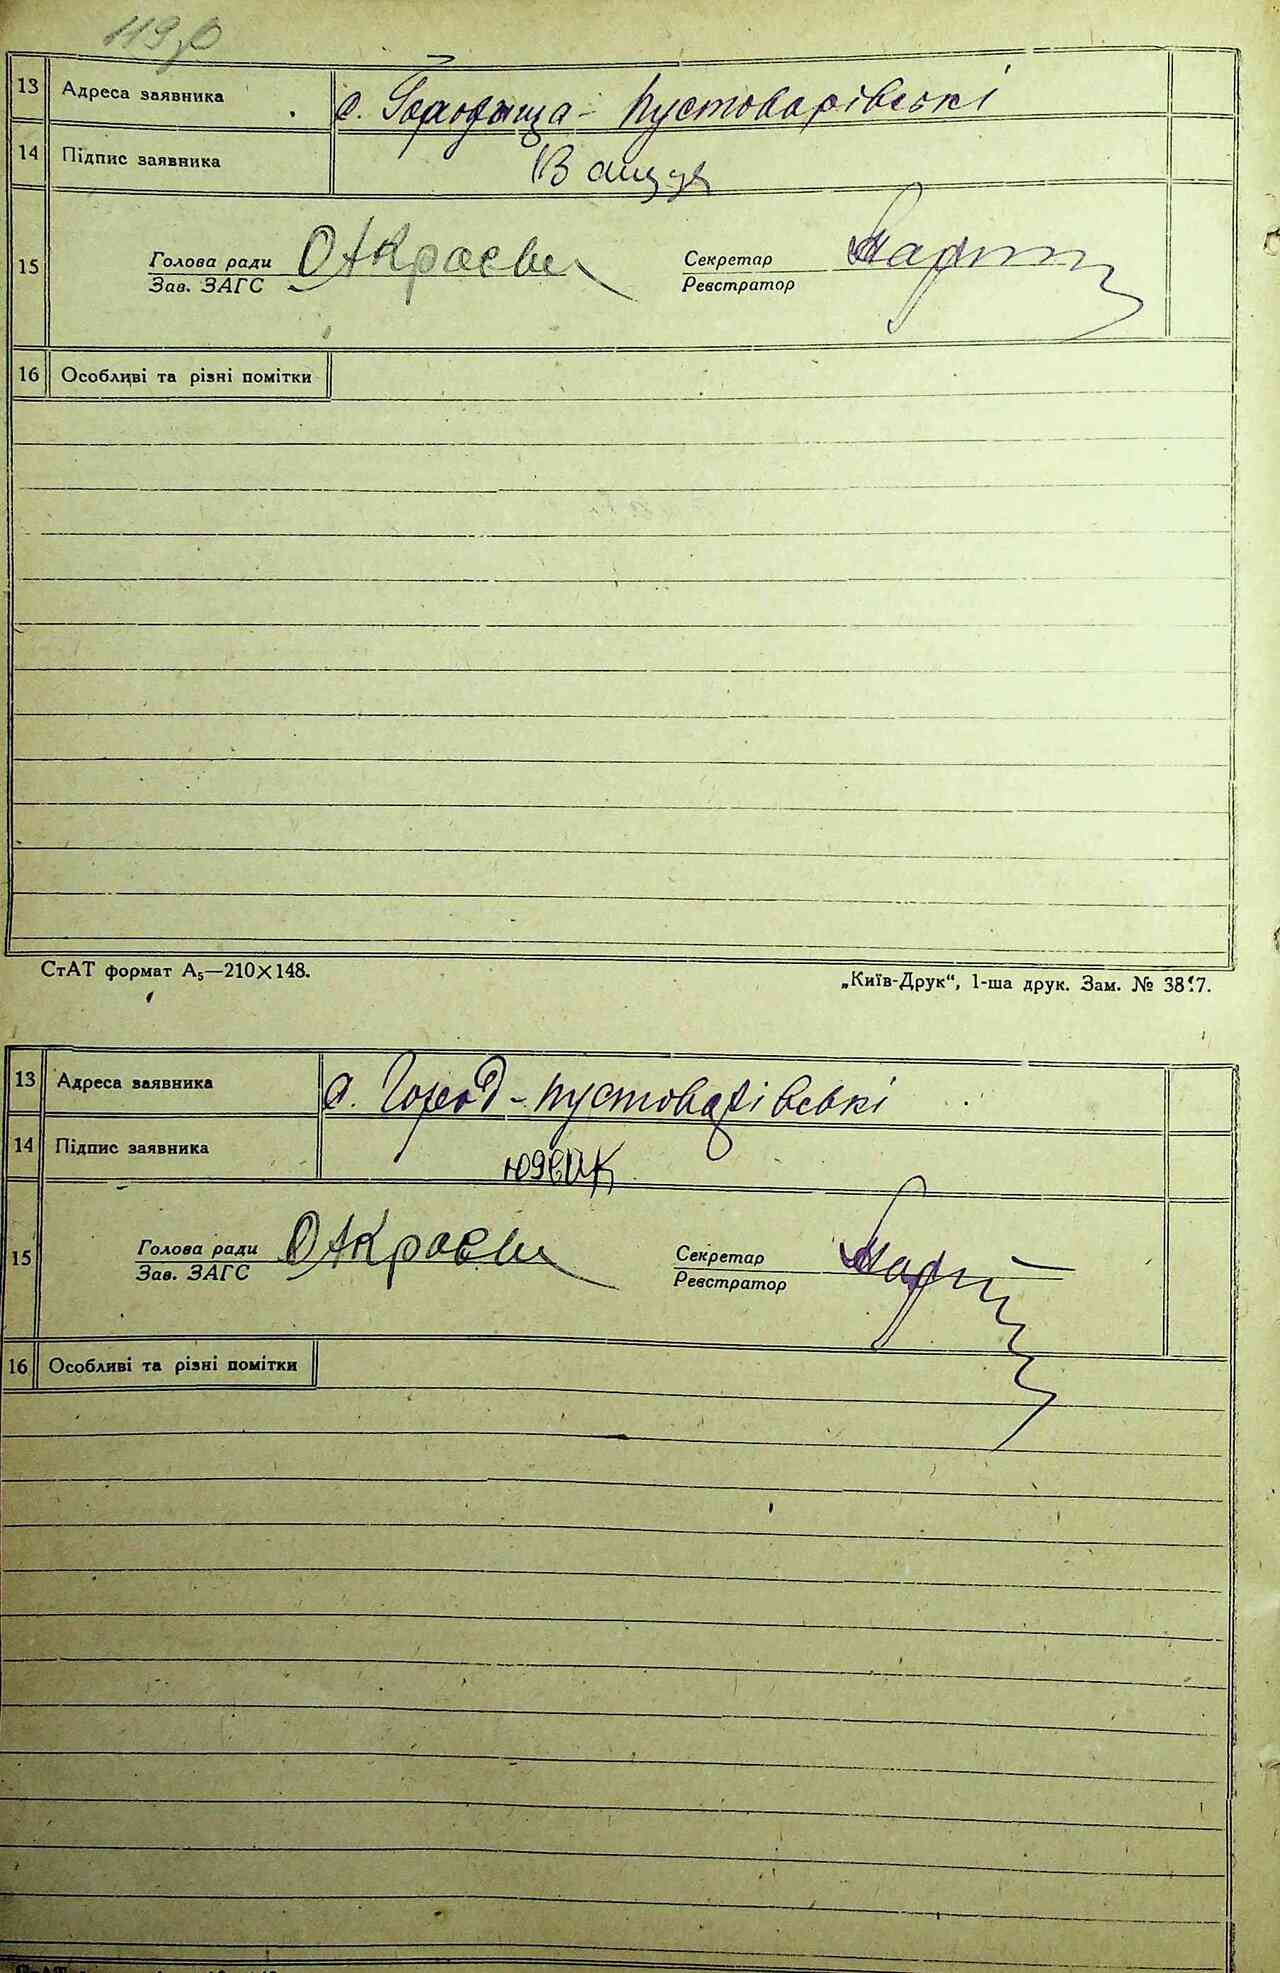 119
13 Адреса заявника с. Городища - Пустоварівські
14 Підпис заявника
15 Голова ради Секретар
Зав. ЗАГС Реєстратор
16 Особливі та різні помітки
СтАТ формат А5—210×148. „Київ-Друк“, 1-ша друк. Зам. №
13 Адреса заявника с. Город - Пустоварівські
14 Підпис заявника
15 Голова ради Секретар
Зав. ЗАГС Реєстратор
16 Особливі та різні помітки